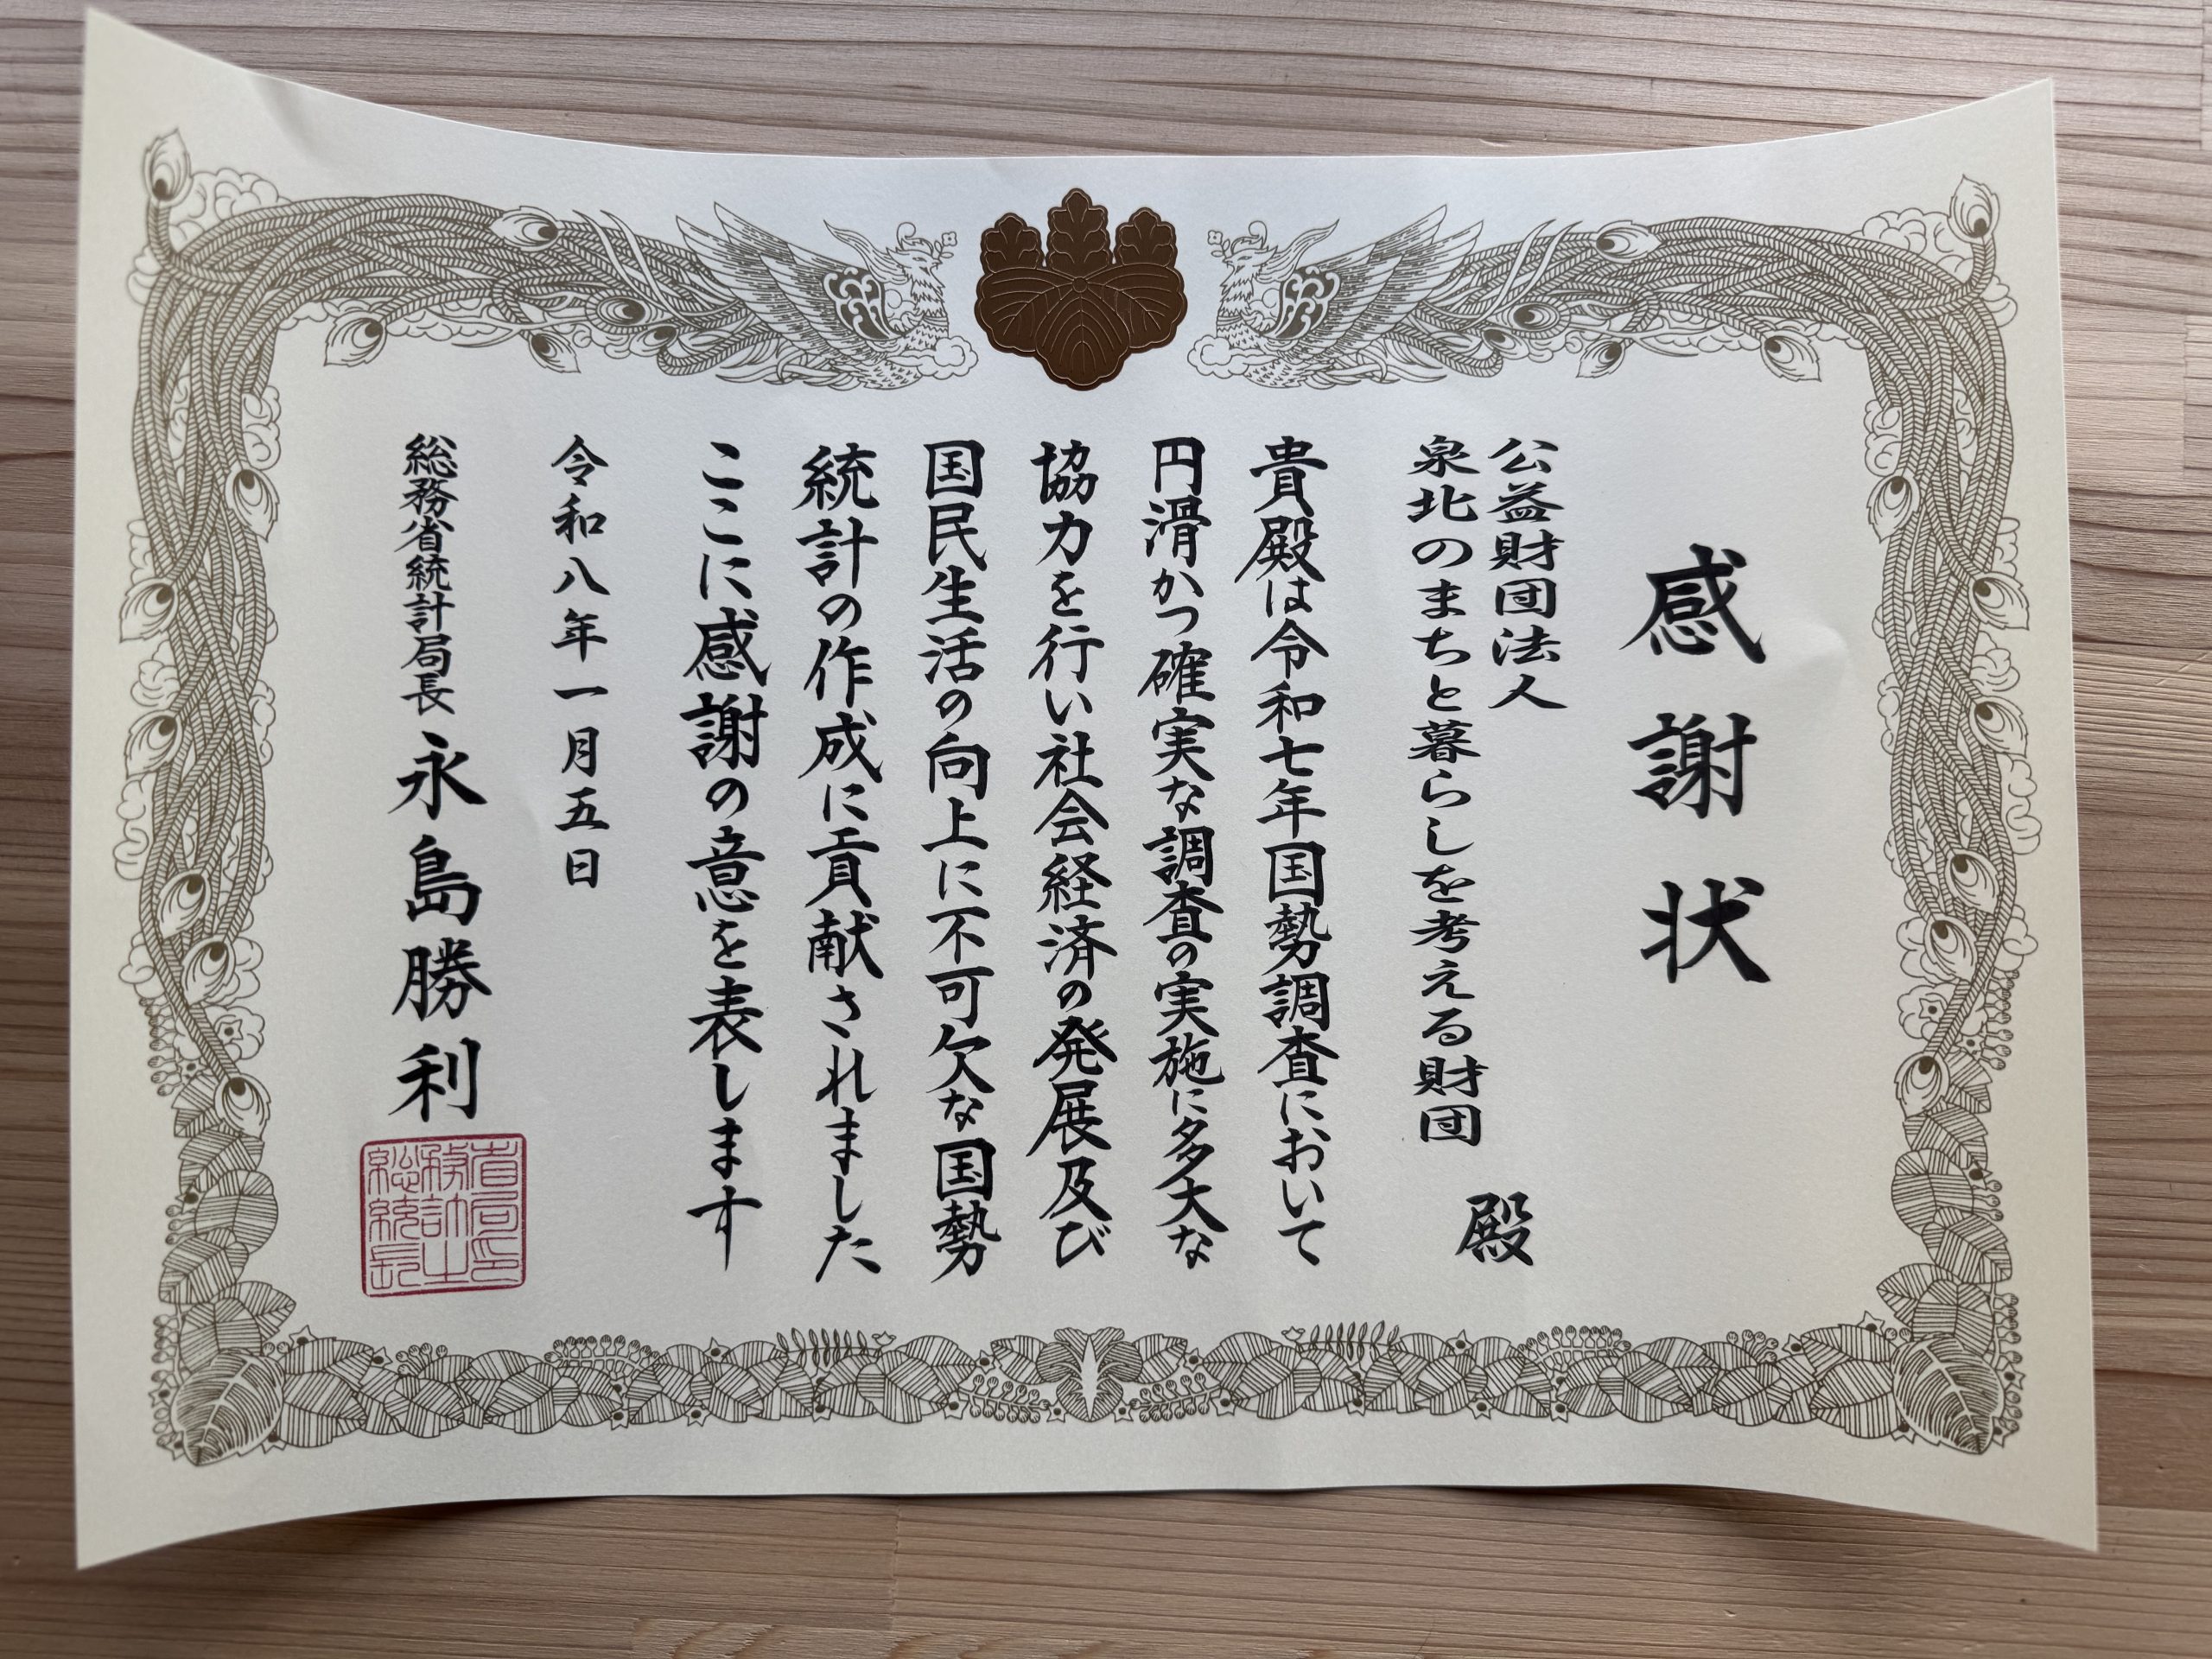 感謝状
公益財団法人
泉北のまちと暮らしを考える財団
殿
貴殿は令和七年国勢調査において
円滑かつ確実な調査の実施に多大な
協力を行い社会経済の発展及び
国民生活の向上に不可欠な国勢
統計の作成に貢献されました
ここに感謝の意を表します
令和八年一月五日
総務省統計局長 永島勝利
総務省
統計局
長之印